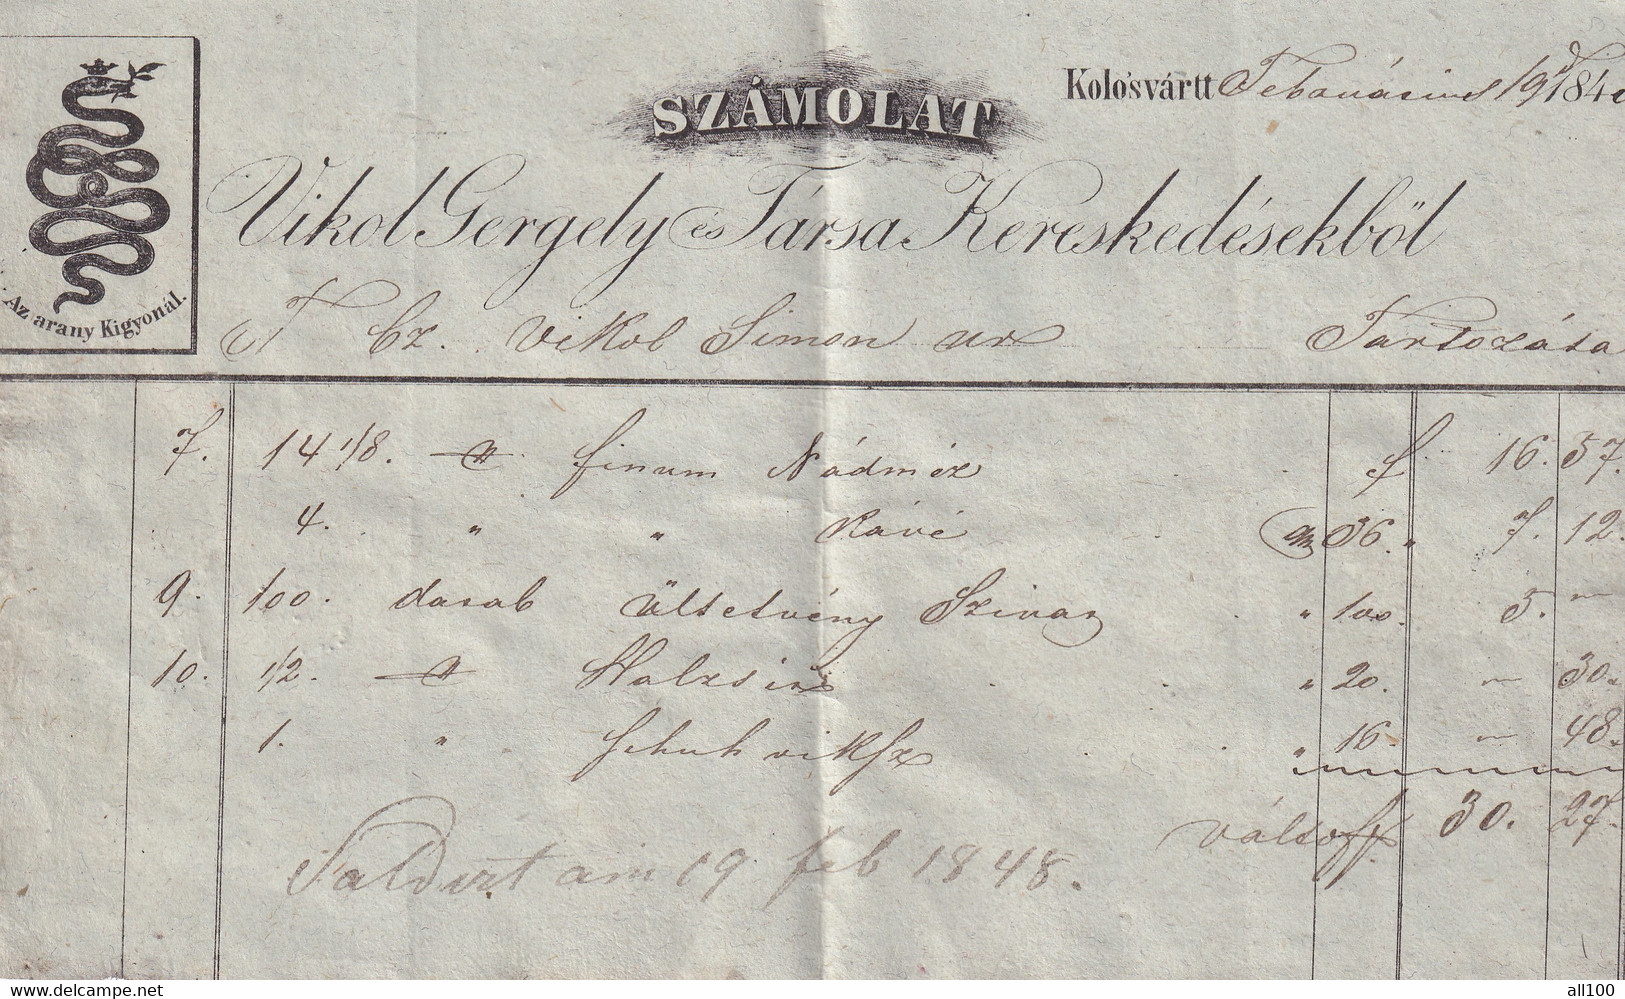 Kolo'svártt Februárius 19 184
SZÁMOLAT
Vikol Gergely és Társa Kereskedésekből
Az arany Kigyonál.
T Cz. Vikol Simon ur Tartozása
7. 14 1/8. finum Nádméz f 16. 57.
4. " " Kávé 36. " 7. 12.
9. 100. darab Ültetvény Szivar " 100. 5. —
10. 1/2. " 20. — 30.
1. " " 16. — 48.
váltoff 30. 27.
Saldirt am 19 feb 1848.
www.delcampe.net
all100